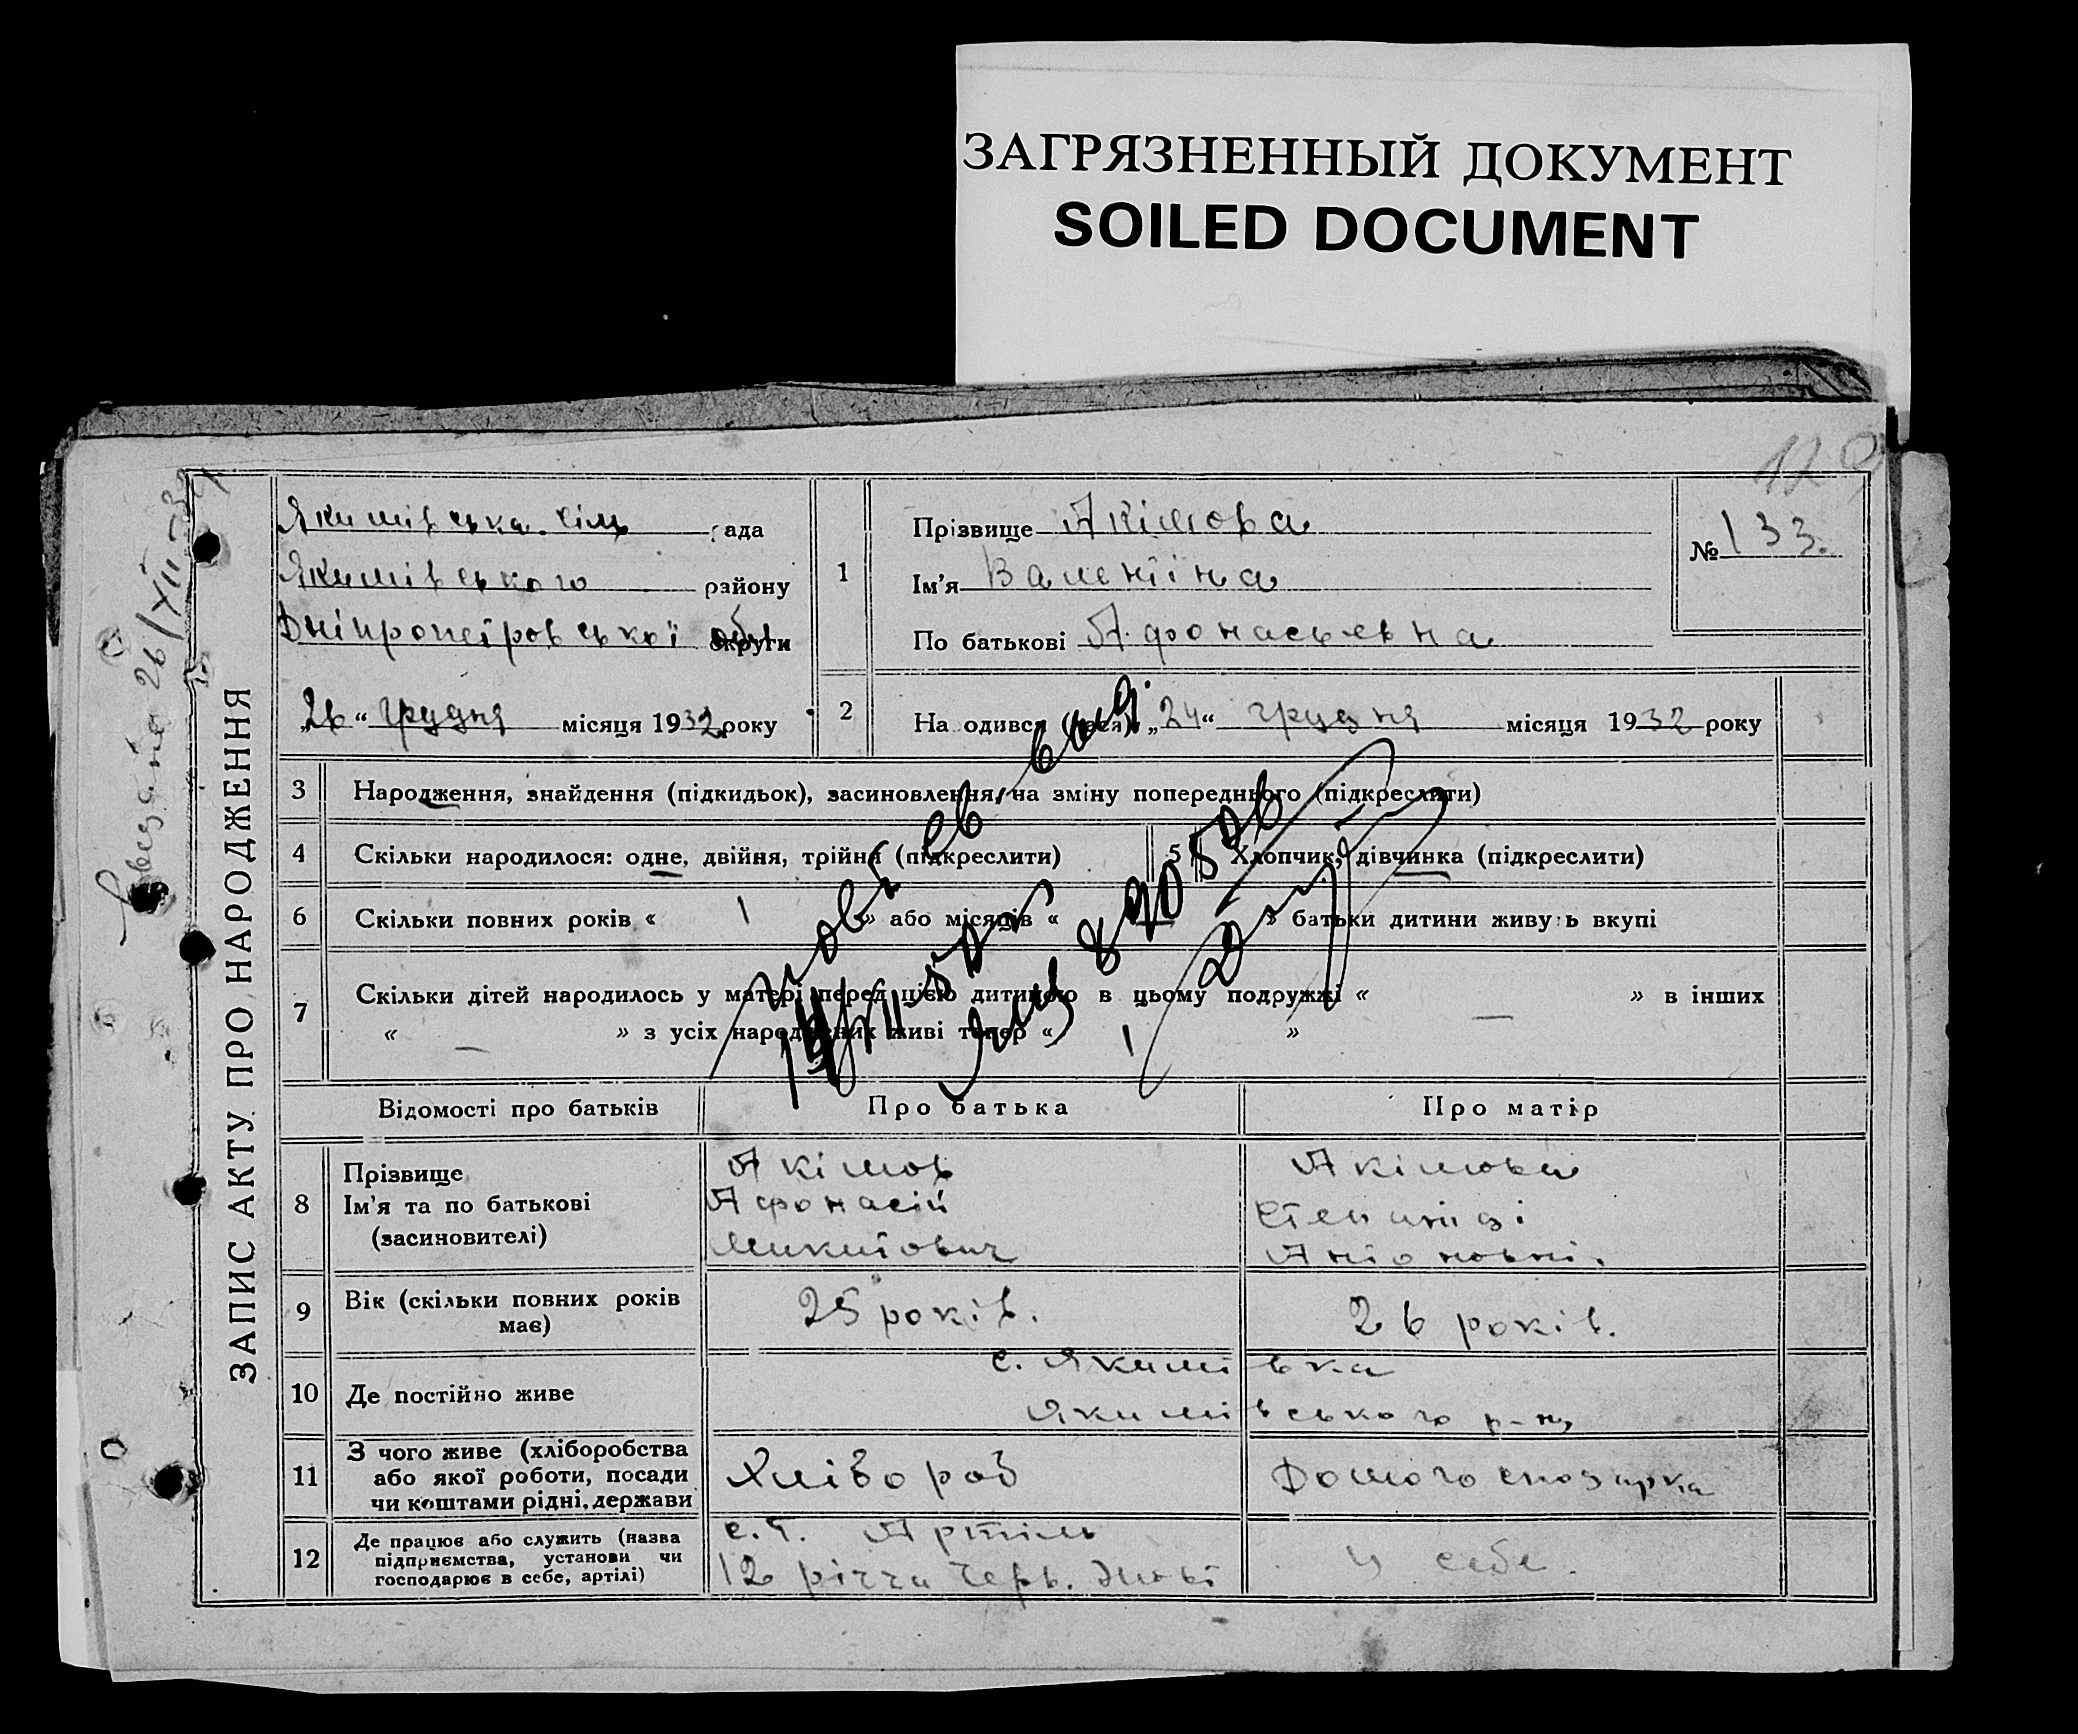 ЗАГРЯЗНЕННЫЙ ДОКУМЕНТ
SOILED DOCUMENT
129
ЗАПИС АКТУ ПРО НАРОДЖЕННЯ
26/XII-32
Якимівська сіль рада
Якимівського району
Дніпропетровської обл округи
„26“ грудня місяця 1932 року
1
Прізвище Акімова
Ім'я Валентіна
По батькові Афонасьевна
№ 133.
2
На одився (лася) „24“ грудня місяця 1932 року
3 Народження, знайдення (підкидьок), засиновлення, на зміну попереднього (підкреслити)
4 Скільки народилося: одне, двійня, трійня (підкреслити)
5 Хлопчик, дівчинка (підкреслити)
6 Скільки повних років « 1 » або місяців « » батьки дитини живуть вкупі
7 Скільки дітей народилось у матері перед цією дитиною в цьому подружжі « » в інших
« — » з усіх народжених живі тепер « 1 »
Відомості про батьків Про батька Про матір
8 Прізвище
Ім'я та по батькові
(засиновителі)
Акімов
Афонасій
Микитович
Акімова
Степаниді
Антоновні.
9 Вік (скільки повних років має) 25 років. 26 років.
10 Де постійно живе с. Якимівка
Якимівського р-ну
11 З чого живе (хліборобства
або якої роботи, посади
чи коштами рідні, держави
Хлібороб
Домогосподарка
12 Де працює або служить (назва
підприємства, установи чи
господарює в себе, артілі)
с.г. Артіль
12 річча Черв.
У себе.